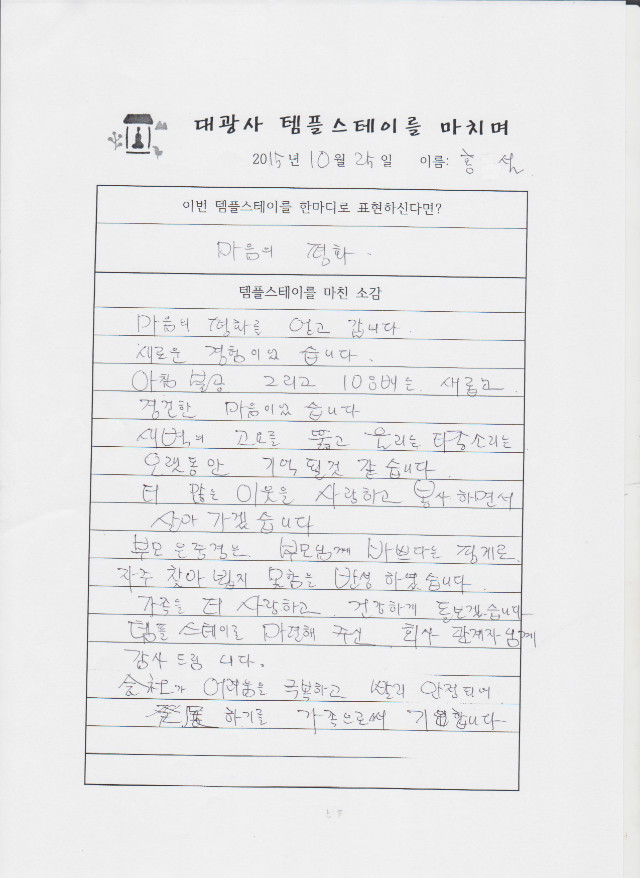 대광사 템플스테이를 마치며
2015년 10월 25일 이름: 홍
이번 템플스테이를 한마디로 표현하신다면?
마음의 평화.
템플스테이를 마친 소감
마음의 평화를 얻고 갑니다.
새로운 경험이었습니다.
아침 불공 그리고 108배는 새롭고
경건한 마음이었습니다
새벽의 고요를 뚫고 울리는 타종소리는
오랫동안 기억될것 같습니다.
더 많은 이웃을 사랑하고 봉사하면서
살아 가겠습니다
부모은중경는 부모님께 바쁘다는 핑계로
자주 찾아뵙지 못함을 반성하였습니다.
가족을 더 사랑하고 건강하게 돌보겠습니다
템플스테이를 마련해 주신 회사 관계자님께
감사드립니다.
会社가 어려움을 극복하고 빨리 안정되어
發展하기를 가족으로써 기원합니다